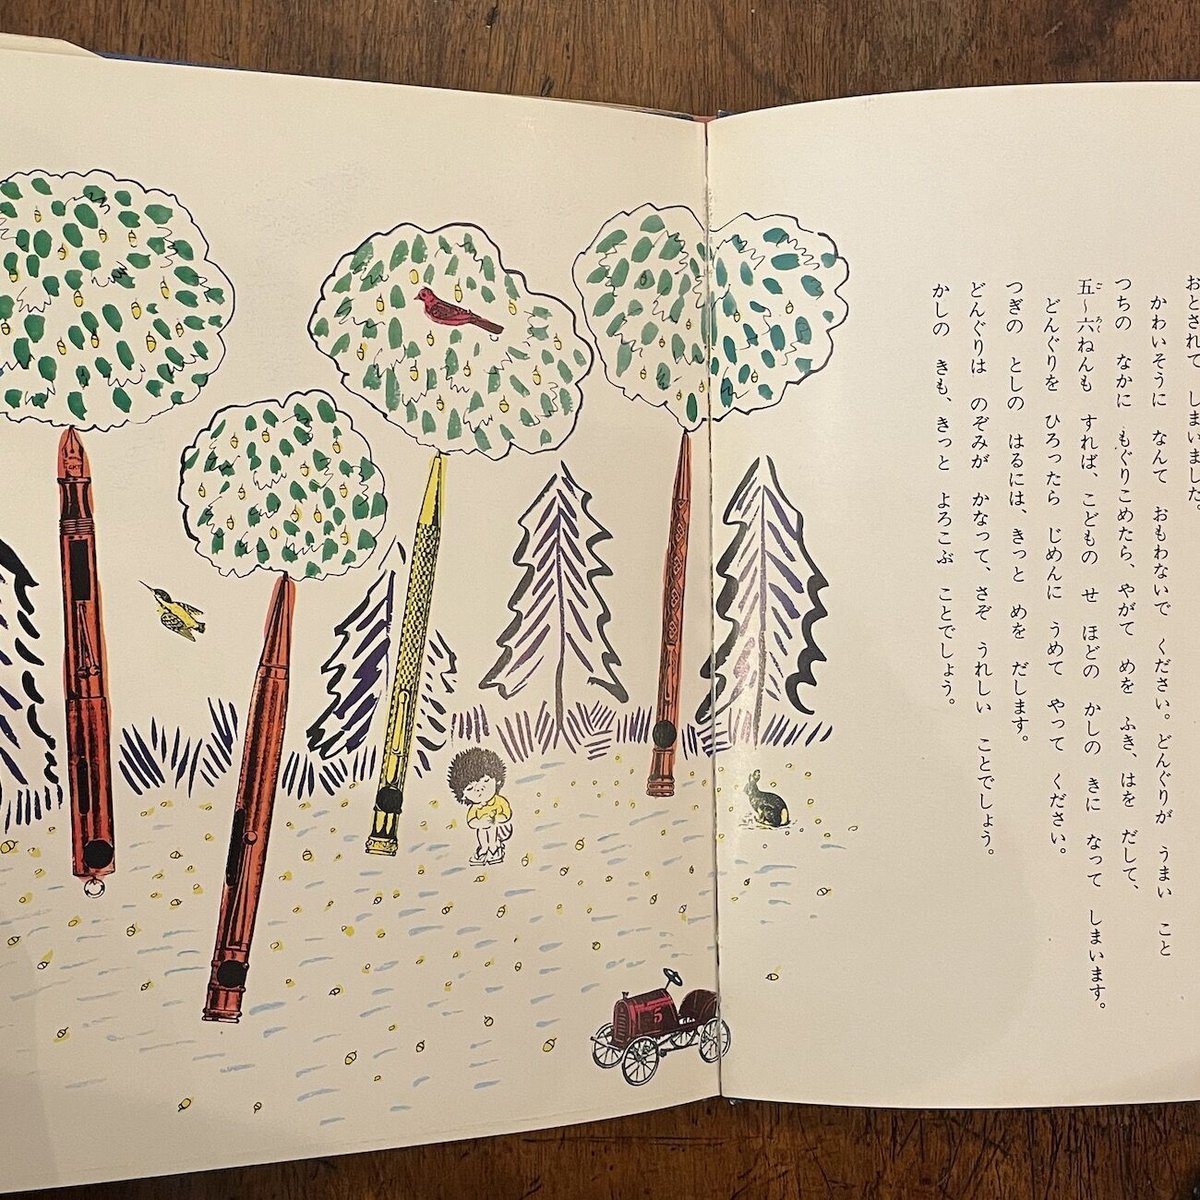 おとされて しまいました。
かわいそうに なんて おもわないで ください。どんぐりが うまい こと
つちの なかに もぐりこめたら、やがて めを ふき、はを だして、
五～六ねんも すれば、こどもの せ ほどの かしの きに なって しまいます。
どんぐりを ひろったら じめんに うめて やって ください。
つぎの としの はるには、きっと めを だします。
どんぐりは のぞみが かなって、さぞ うれしい ことでしょう。
かしの きも、きっと よろこぶ ことでしょう。
5